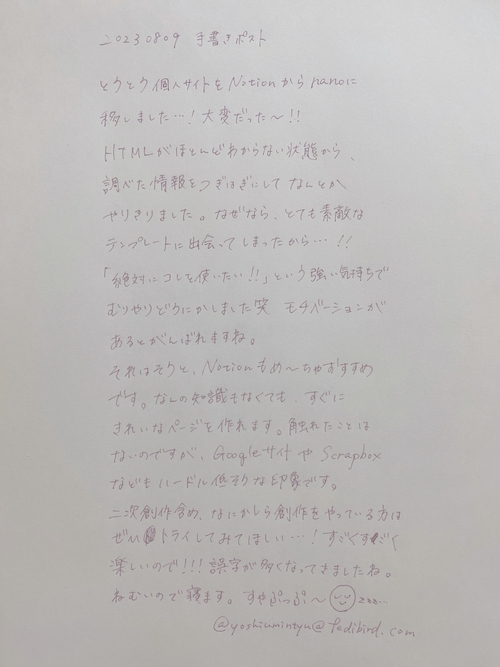 20230809 手書きポスト
とうとう個人サイトをNotionからnanoに
移しました…！大変だった〜！！
HTMLがほとんどわからない状態から、
調べた情報をつぎはぎにしてなんとか
やりきりました。なぜなら、とても素敵な
テンプレートに出会ってしまったから…！！
「絶対にコレを使いたい！！」という強い気持ちで
むりやりどうにかしました笑 モチベーションが
あるとがんばれますね。
それはそうと、Notionもめ〜ちゃおすすめ
です。なんの知識もなくても、すぐに
きれいなページを作れます。触れたことは
ないのですが、GoogleサイトやScrapbox
などもハードル低そうな印象です。
二次創作含め、なにかしら創作をやっている方は
ぜひトライしてみてほしい…！すごくすごく
楽しいので！！！誤字が多くなってきましたね。
ねむいので寝ます。すやぷっぷ〜 zzz…
@yoshiumintyu@fedibird.com